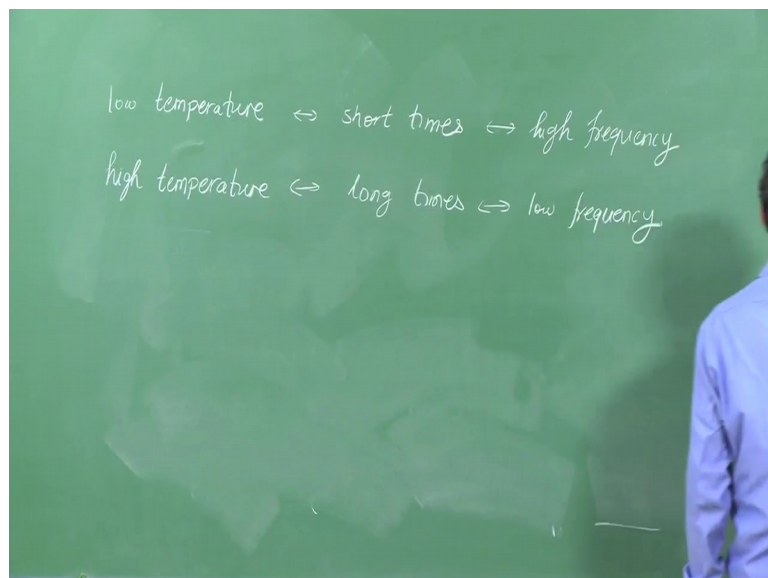 low temperature ↔ short times ↔ high frequency
high temperature ↔ long times ↔ low frequency